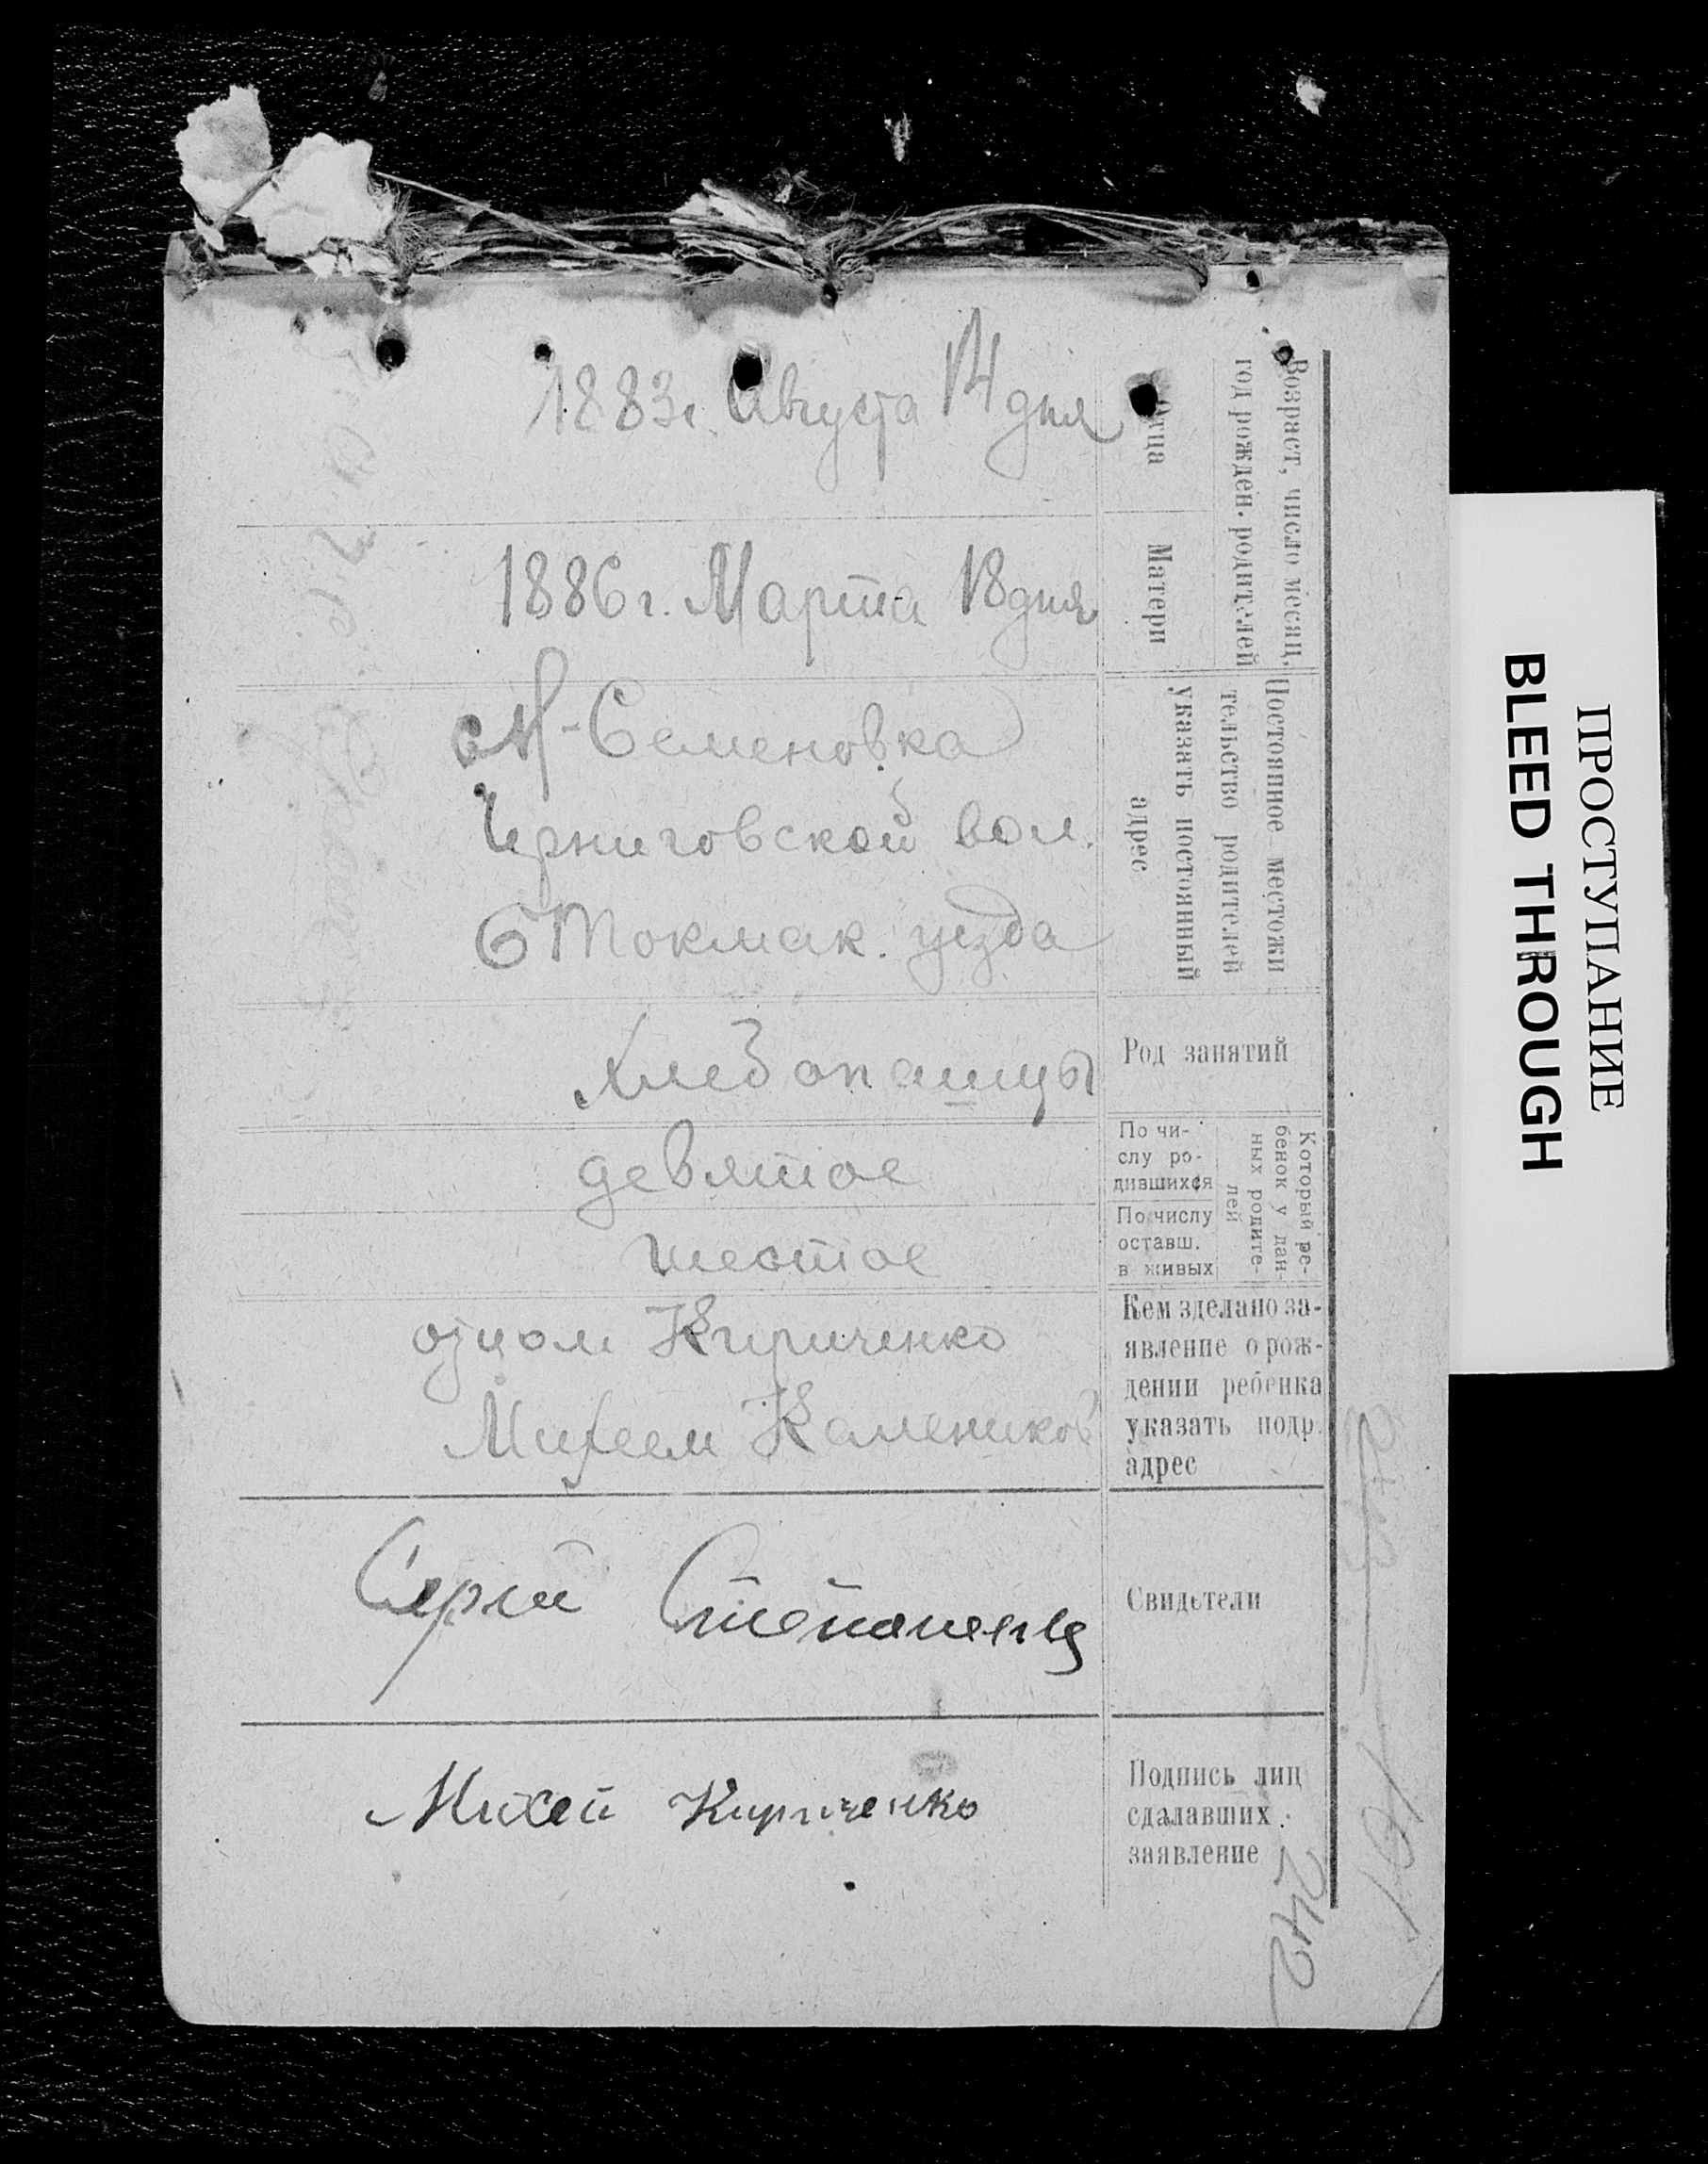 Возраст, число месяц,
год рожден. родителей
Отца
1883г. Августа 14 дня
Матери
1886 г. Марта 18 дня
Постоянное местожи
тельство родителей
указать постоянный
адрес
М-Семеновка
Черниговской вол.
Б Токмак. уезда
Род занятий
Хлебопашцы
Который ре-
бенок у дан-
ных родите-
лей
По чи-
слу ро-
дившихся
девятое
По числу
оставш.
в живых
шестое
Кем зделано за-
явление о рож-
дении ребенка
указать подр.
адрес
отцом Кириченко
Михеем
Свидетели
Сергей Степаненко
Подпись лиц
сдалавших
заявление
Михей Кириченко
242
101
ПРОСТУПАНИЕ
BLEED THROUGH